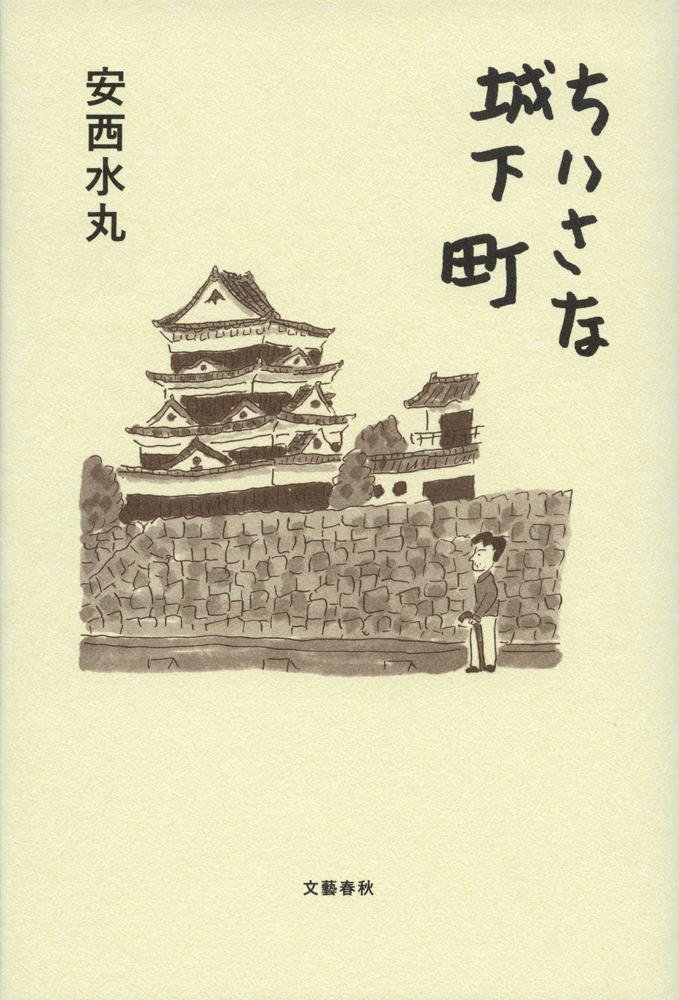 ちいさな
城下町
安西水丸
文藝春秋